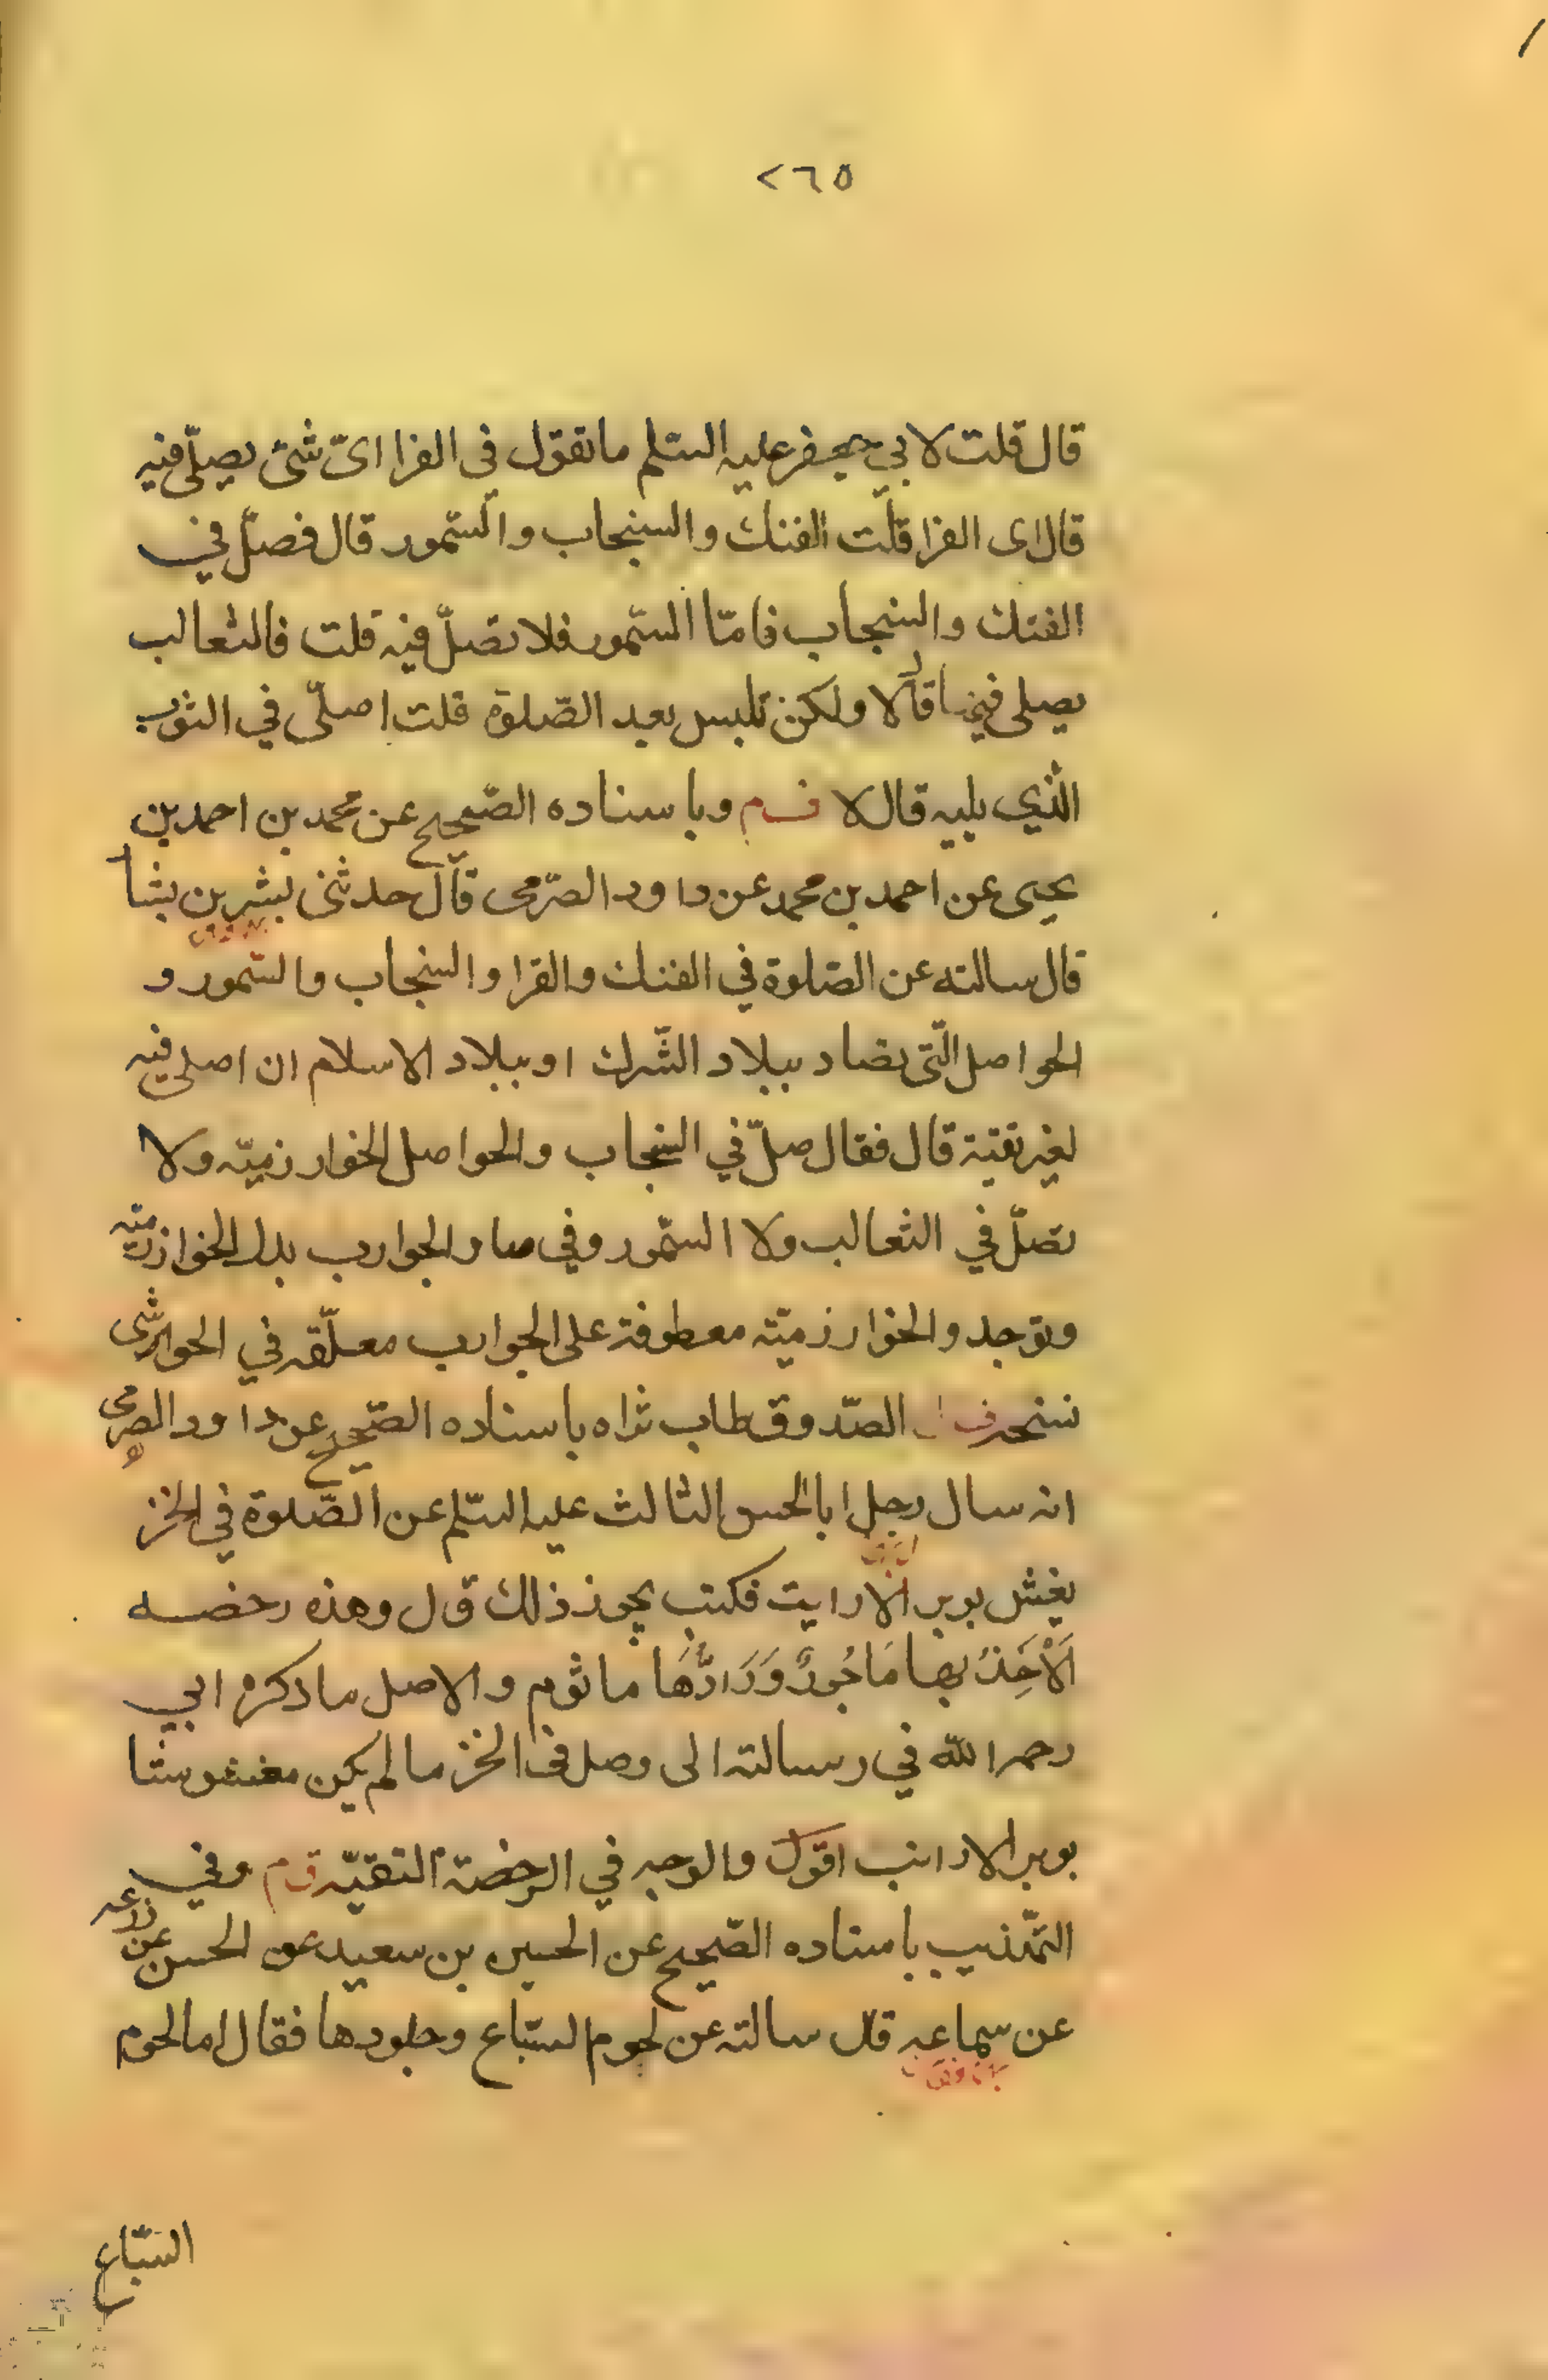 ٢٦٥
قال قلت لابي جعفر عليه السلم ما تقول في الفرا اىّ شئ يصلّى فيه
قال اى الفرا قلت الفنك والسنجاب والسّمور قال فصلّ في
الفنك والسنجاب فامّا السّمور فلا تصلّ فيه قلت فالثعالب
يصلى فيها قال لا ولكن تلبس بعد الصّلوة قلت اصلّى في الثوب
الّذي يليه قال لا وباسناده الصّحيح عن محمد بن احمد بن
يحيى عن احمد بن محمد عن داود الصّرمى قال حدثنى بشر بن بشا
قال سالته عن الصّلوة في الفنك والفرا والسنجاب والسّمور و
الحواصل الّتى تصاد ببلاد الشّرك او ببلاد الاسلام ان اصلى فيه
لغير تقية قال فقال صلّ في السنجاب والحواصل الخوارزميّه ولا
تصلّ في الثعالب ولا السّمور وفي صا والجوارب بدل الخوارزميّه
وتوجد والخوارزميّه معطوفة على الجوارب معلّقه في الحواشى
الصّدوق طاب ثراه باسناده الصّحيح عن داود الصرمى
انه سال رجل ابا الحسن الثالث عليه السّلم عن الصّلوة في الخز
يغش بوبر الارانب فكتب يجوز ذلك قال وهذه رخصه
اَلْآخِذُ بها مَاجُورٌ وَرَادُّهَا ماثوم والاصل ما ذكره ابي
رحمه الله في رسالته الى وصل في الخز ما لم يكن مغشوشا
بوبر الارانب اقول والوجه في الرخصة التقيّه وفي
التّهذيب باسناده الصّحيح عن الحسين بن سعيد عن الحسن عن زرعه
عن سماعه قال سالته عن لحوم السّباع وجلودها فقال اما لحوم
السّباع